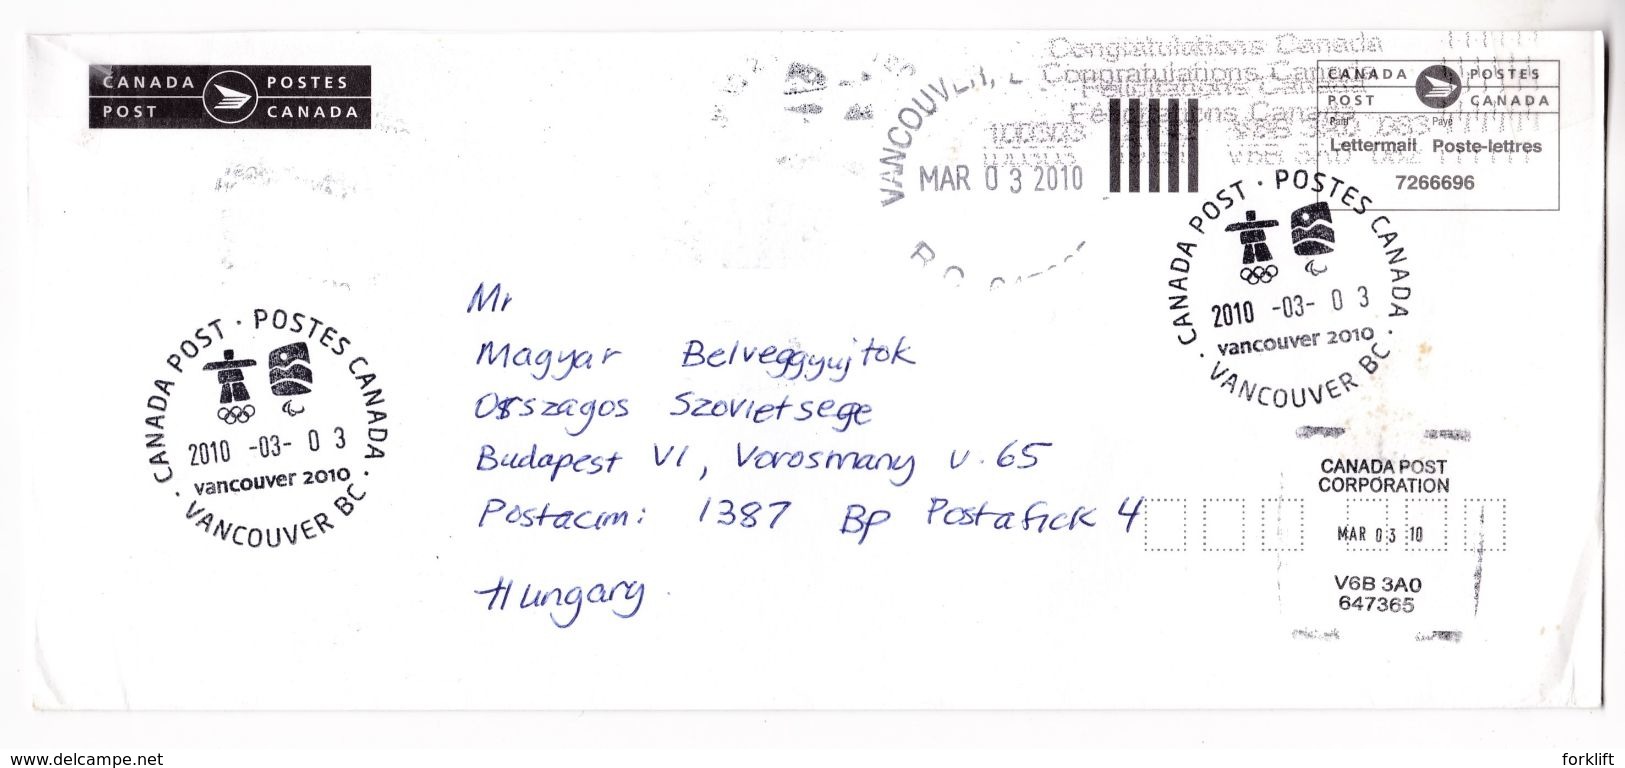 CANADA POSTES
POST CANADA
Congratulations Canada
Congratulations Canada
Félicitations Canada
Félicitations Canada
CANADA POSTES
POST CANADA
Paid Payé
Lettermail Poste-lettres
7266696
VANCOUVER,
100303
MAR 03 2010
CANADA POST · POSTES CANADA
2010 -03- 0 3
vancouver 2010
VANCOUVER BC
Mr
Magyar Belveggyujtok
Orszagos Szovietsege
Budapest VI, Vorosmany u. 65
Postacim: 1387 BP Postafick 4
Hungary
CANADA POST · POSTES CANADA
2010 -03- 0 3
vancouver 2010
VANCOUVER BC
CANADA POST
CORPORATION
MAR 03 10
V6B 3A0
647365
www.delcampe.net
forklift